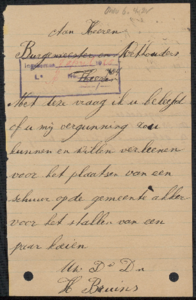 Aan Heeren
Burgemeester en Wethouders
Met deze vraag ik u beleefd
of u mij vergunning zou
kunnen en willen verleenen
voor het plaatsen van een
schuur op de gemeente akker
voor het stallen van een
paar koeien
Uw D D
H Bruins